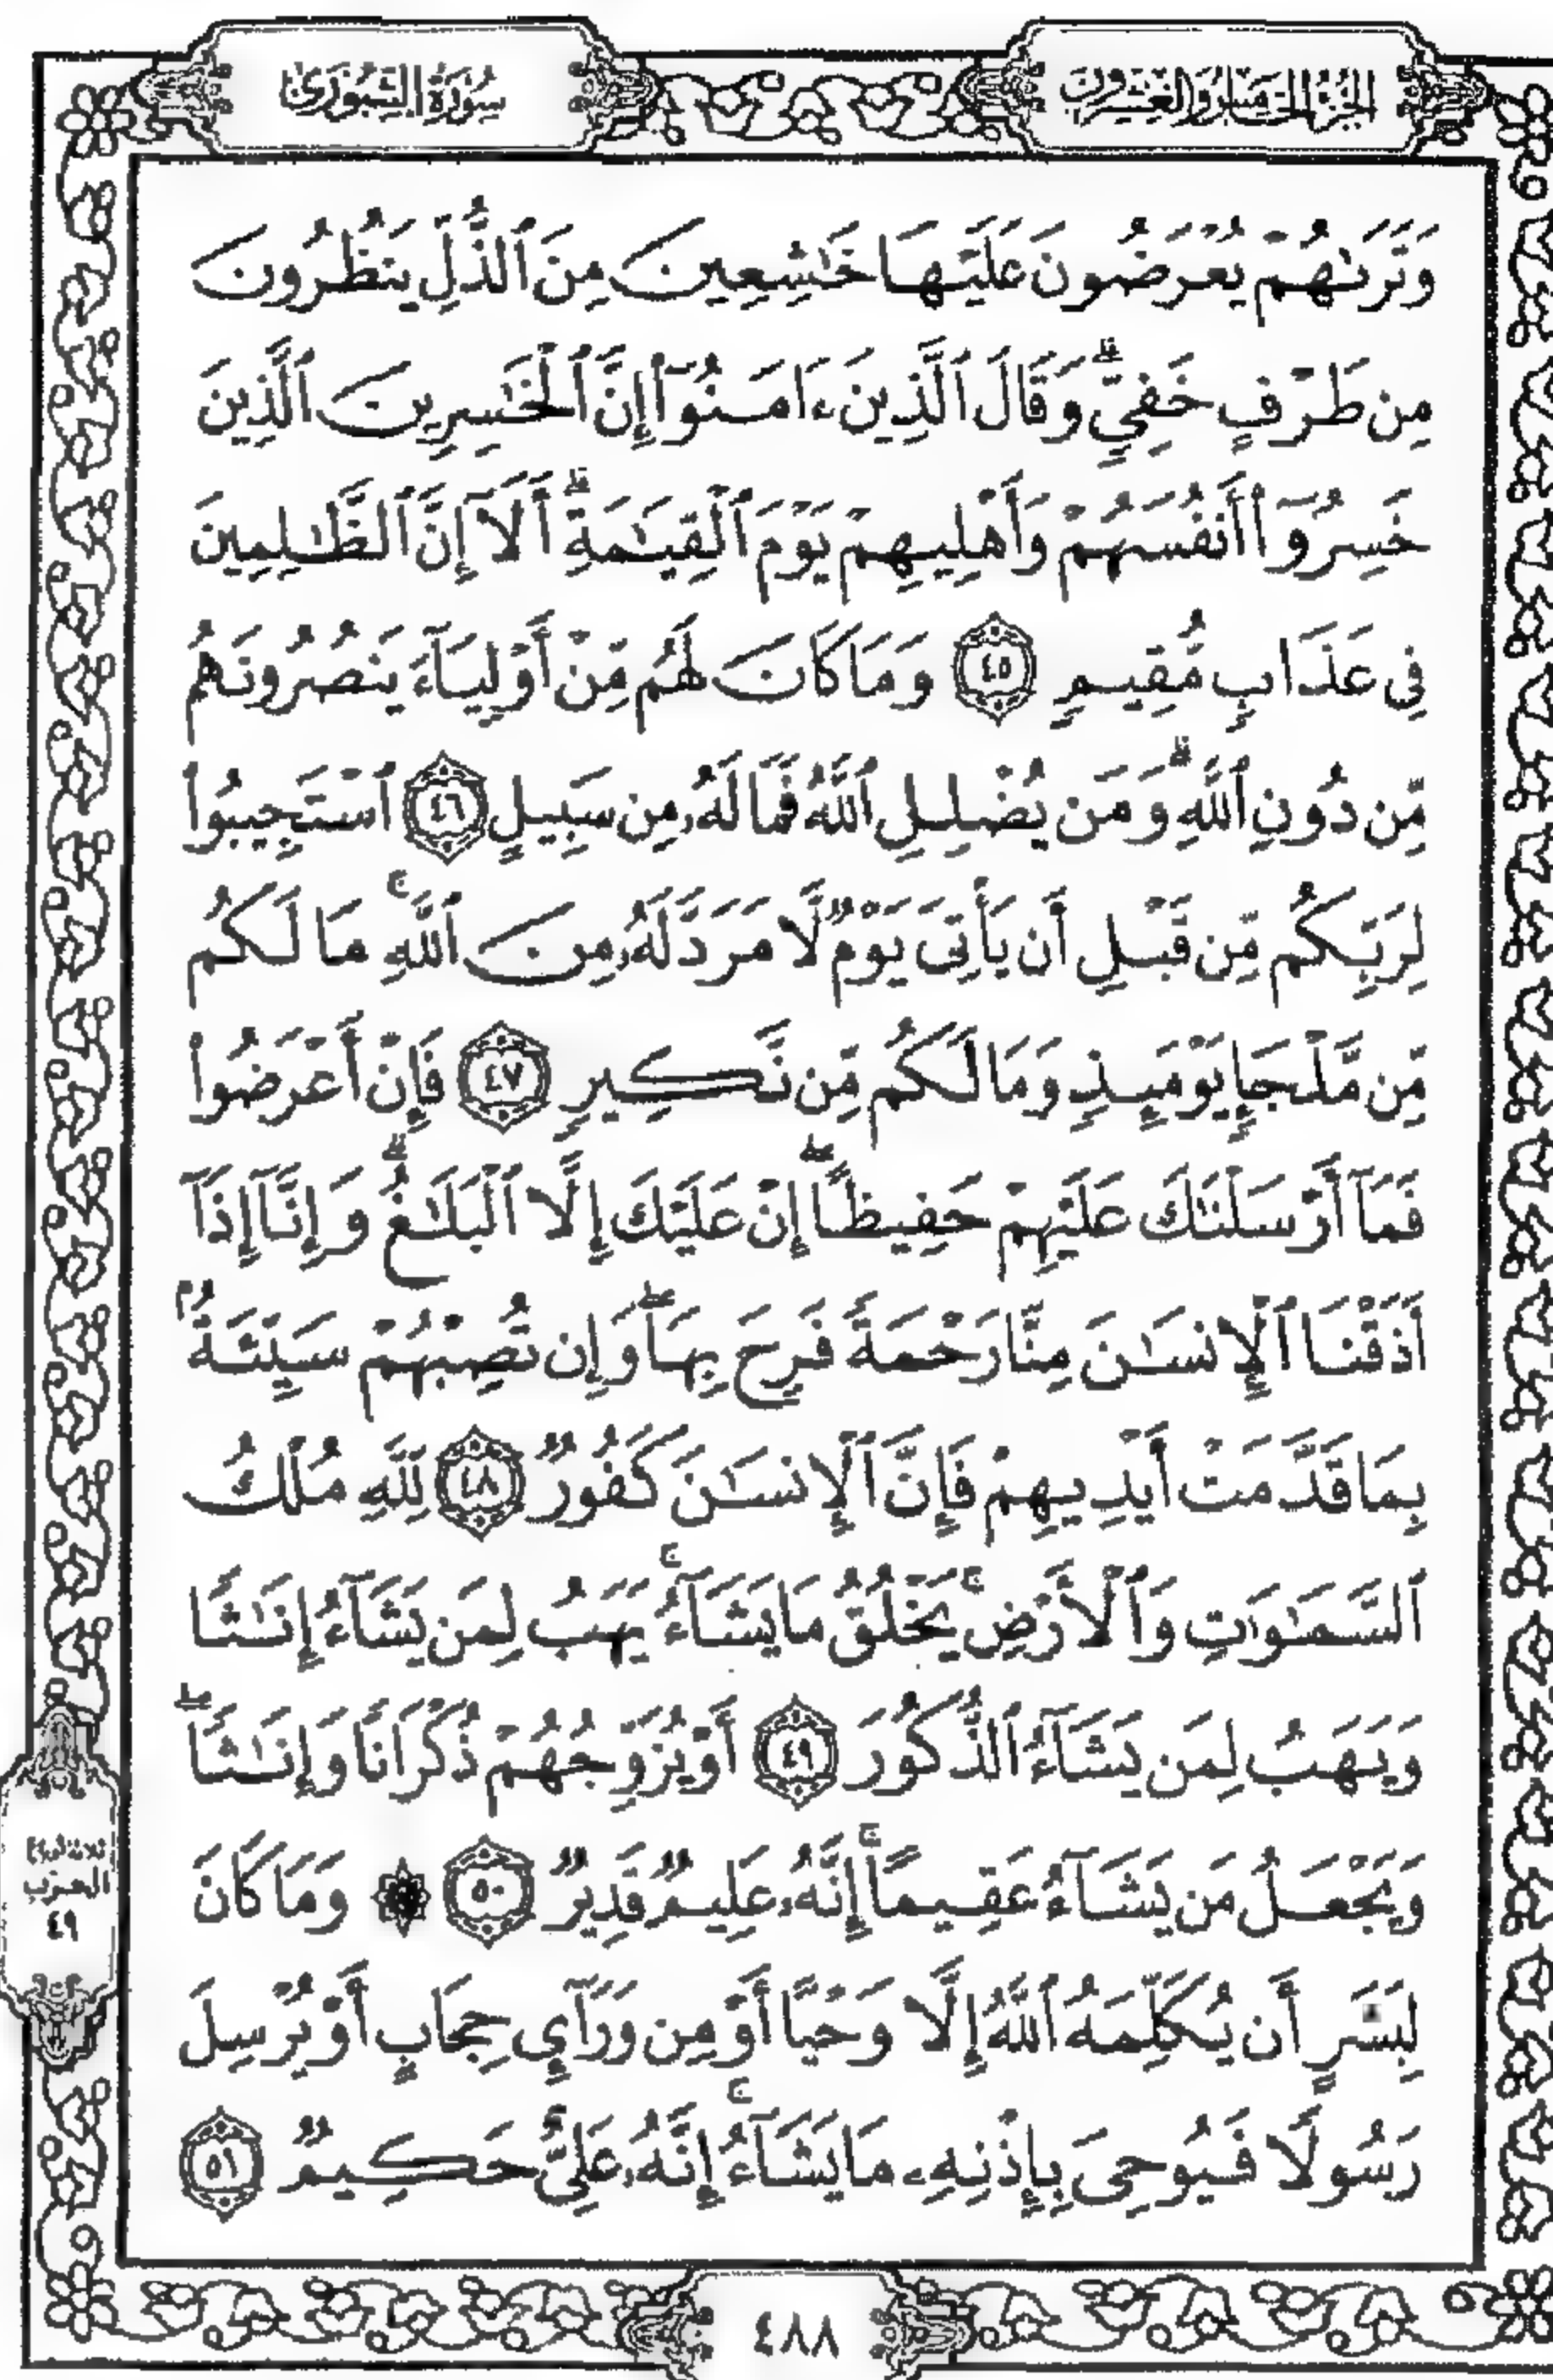 الجزء الخامس والعشرون
سورة الشورى
وَتَرَىٰهُمْ يُعْرَضُونَ عَلَيْهَا خَٰشِعِينَ مِنَ ٱلذُّلِّ يَنظُرُونَ
مِن طَرْفٍ خَفِيٍّ ۗ وَقَالَ ٱلَّذِينَ ءَامَنُوٓا۟ إِنَّ ٱلْخَٰسِرِينَ ٱلَّذِينَ
خَسِرُوٓا۟ أَنفُسَهُمْ وَأَهْلِيهِمْ يَوْمَ ٱلْقِيَٰمَةِ ۗ أَلَآ إِنَّ ٱلظَّٰلِمِينَ
فِى عَذَابٍ مُّقِيمٍ ٤٥ وَمَا كَانَ لَهُم مِّنْ أَوْلِيَآءَ يَنصُرُونَهُم
مِّن دُونِ ٱللَّهِ ۗ وَمَن يُضْلِلِ ٱللَّهُ فَمَا لَهُۥ مِن سَبِيلٍ ٤٦ ٱسْتَجِيبُوا۟
لِرَبِّكُم مِّن قَبْلِ أَن يَأْتِىَ يَوْمٌ لَّا مَرَدَّ لَهُۥ مِنَ ٱللَّهِ ۚ مَا لَكُم
مِّن مَّلْجَإٍ يَوْمَئِذٍ وَمَا لَكُم مِّن نَّكِيرٍ ٤٧ فَإِنْ أَعْرَضُوا۟
فَمَآ أَرْسَلْنَٰكَ عَلَيْهِمْ حَفِيظًا ۖ إِنْ عَلَيْكَ إِلَّا ٱلْبَلَٰغُ ۗ وَإِنَّآ إِذَآ
أَذَقْنَا ٱلْإِنسَٰنَ مِنَّا رَحْمَةً فَرِحَ بِهَا ۖ وَإِن تُصِبْهُمْ سَيِّئَةٌۢ
بِمَا قَدَّمَتْ أَيْدِيهِمْ فَإِنَّ ٱلْإِنسَٰنَ كَفُورٌ ٤٨ لِلَّهِ مُلْكُ
ٱلسَّمَٰوَٰتِ وَٱلْأَرْضِ ۚ يَخْلُقُ مَا يَشَآءُ ۚ يَهَبُ لِمَن يَشَآءُ إِنَٰثًا
وَيَهَبُ لِمَن يَشَآءُ ٱلذُّكُورَ ٤٩ أَوْ يُزَوِّجُهُمْ ذُكْرَانًا وَإِنَٰثًا ۖ
وَيَجْعَلُ مَن يَشَآءُ عَقِيمًا ۚ إِنَّهُۥ عَلِيمٌ قَدِيرٌ ٥٠ ۞ وَمَا كَانَ
لِبَشَرٍ أَن يُكَلِّمَهُ ٱللَّهُ إِلَّا وَحْيًا أَوْ مِن وَرَآئِ حِجَابٍ أَوْ يُرْسِلَ
رَسُولًا فَيُوحِىَ بِإِذْنِهِۦ مَا يَشَآءُ ۚ إِنَّهُۥ عَلِىٌّ حَكِيمٌ ٥١
ثلاثة أرباع
الحزب
٤٩
٤٨٨